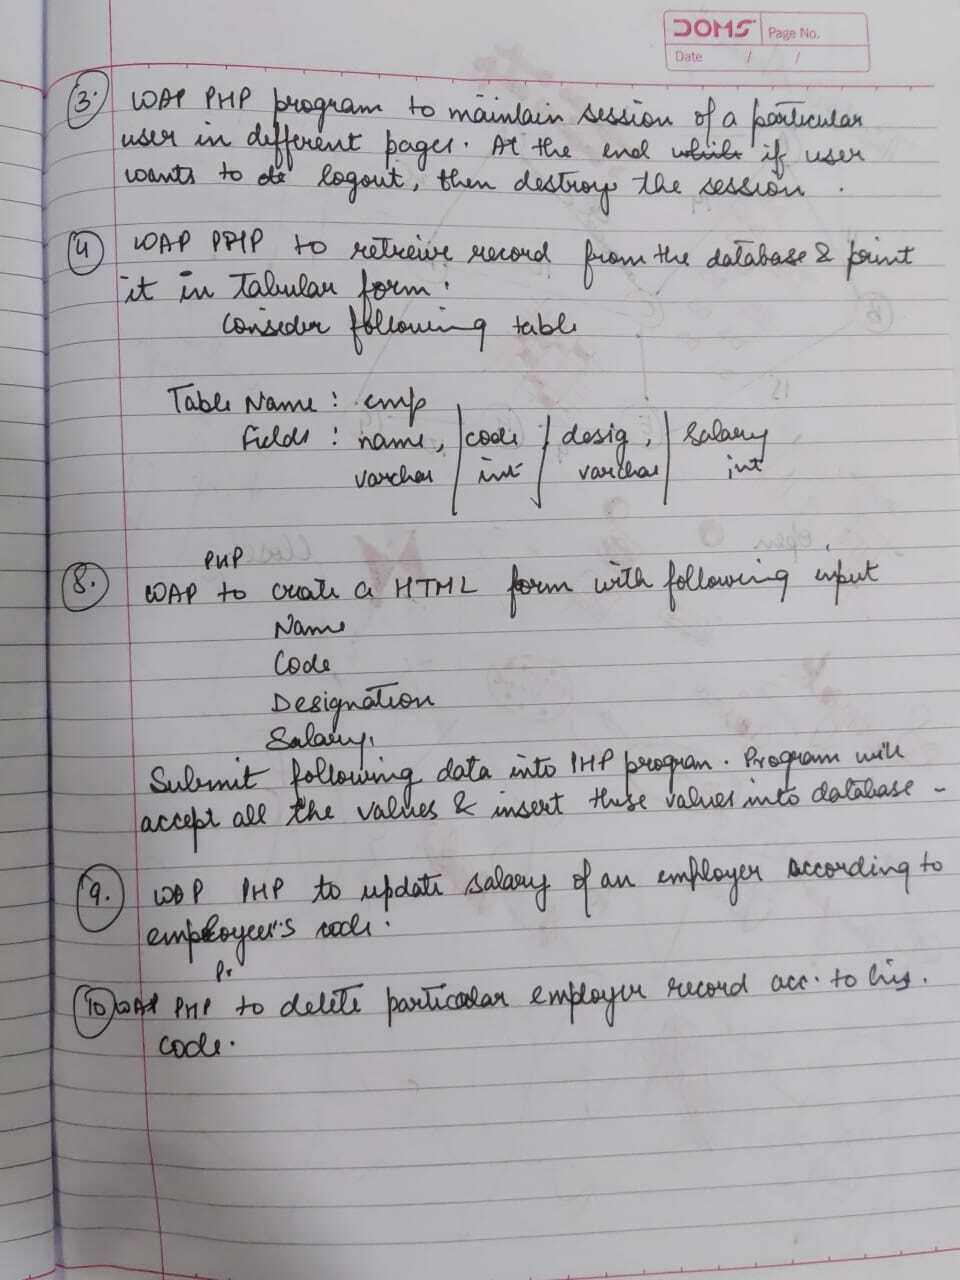 DOMS Page No.
Date / /
3. WAP PHP program to maintain session of a particular
user in different pages. At the end while if user
wants to de logout, then destroy the session.
4 WAP PHP to retreive record from the database & print
it in Tabular form.
Consider following table
Table Name : emp
Fields : name, | code | desig, | salary
varchar | int | varchar | int
PHP
8. WAP to create a HTML form with following input
Name
Code
Designation
Salary,
Submit following data into PHP program. Program will
accept all the values & insert these values into database -
9. WAP PHP to update salary of an employee according to
employee's code.
Pr
10 WAP PHP to delete particular employee record acc. to his.
code.